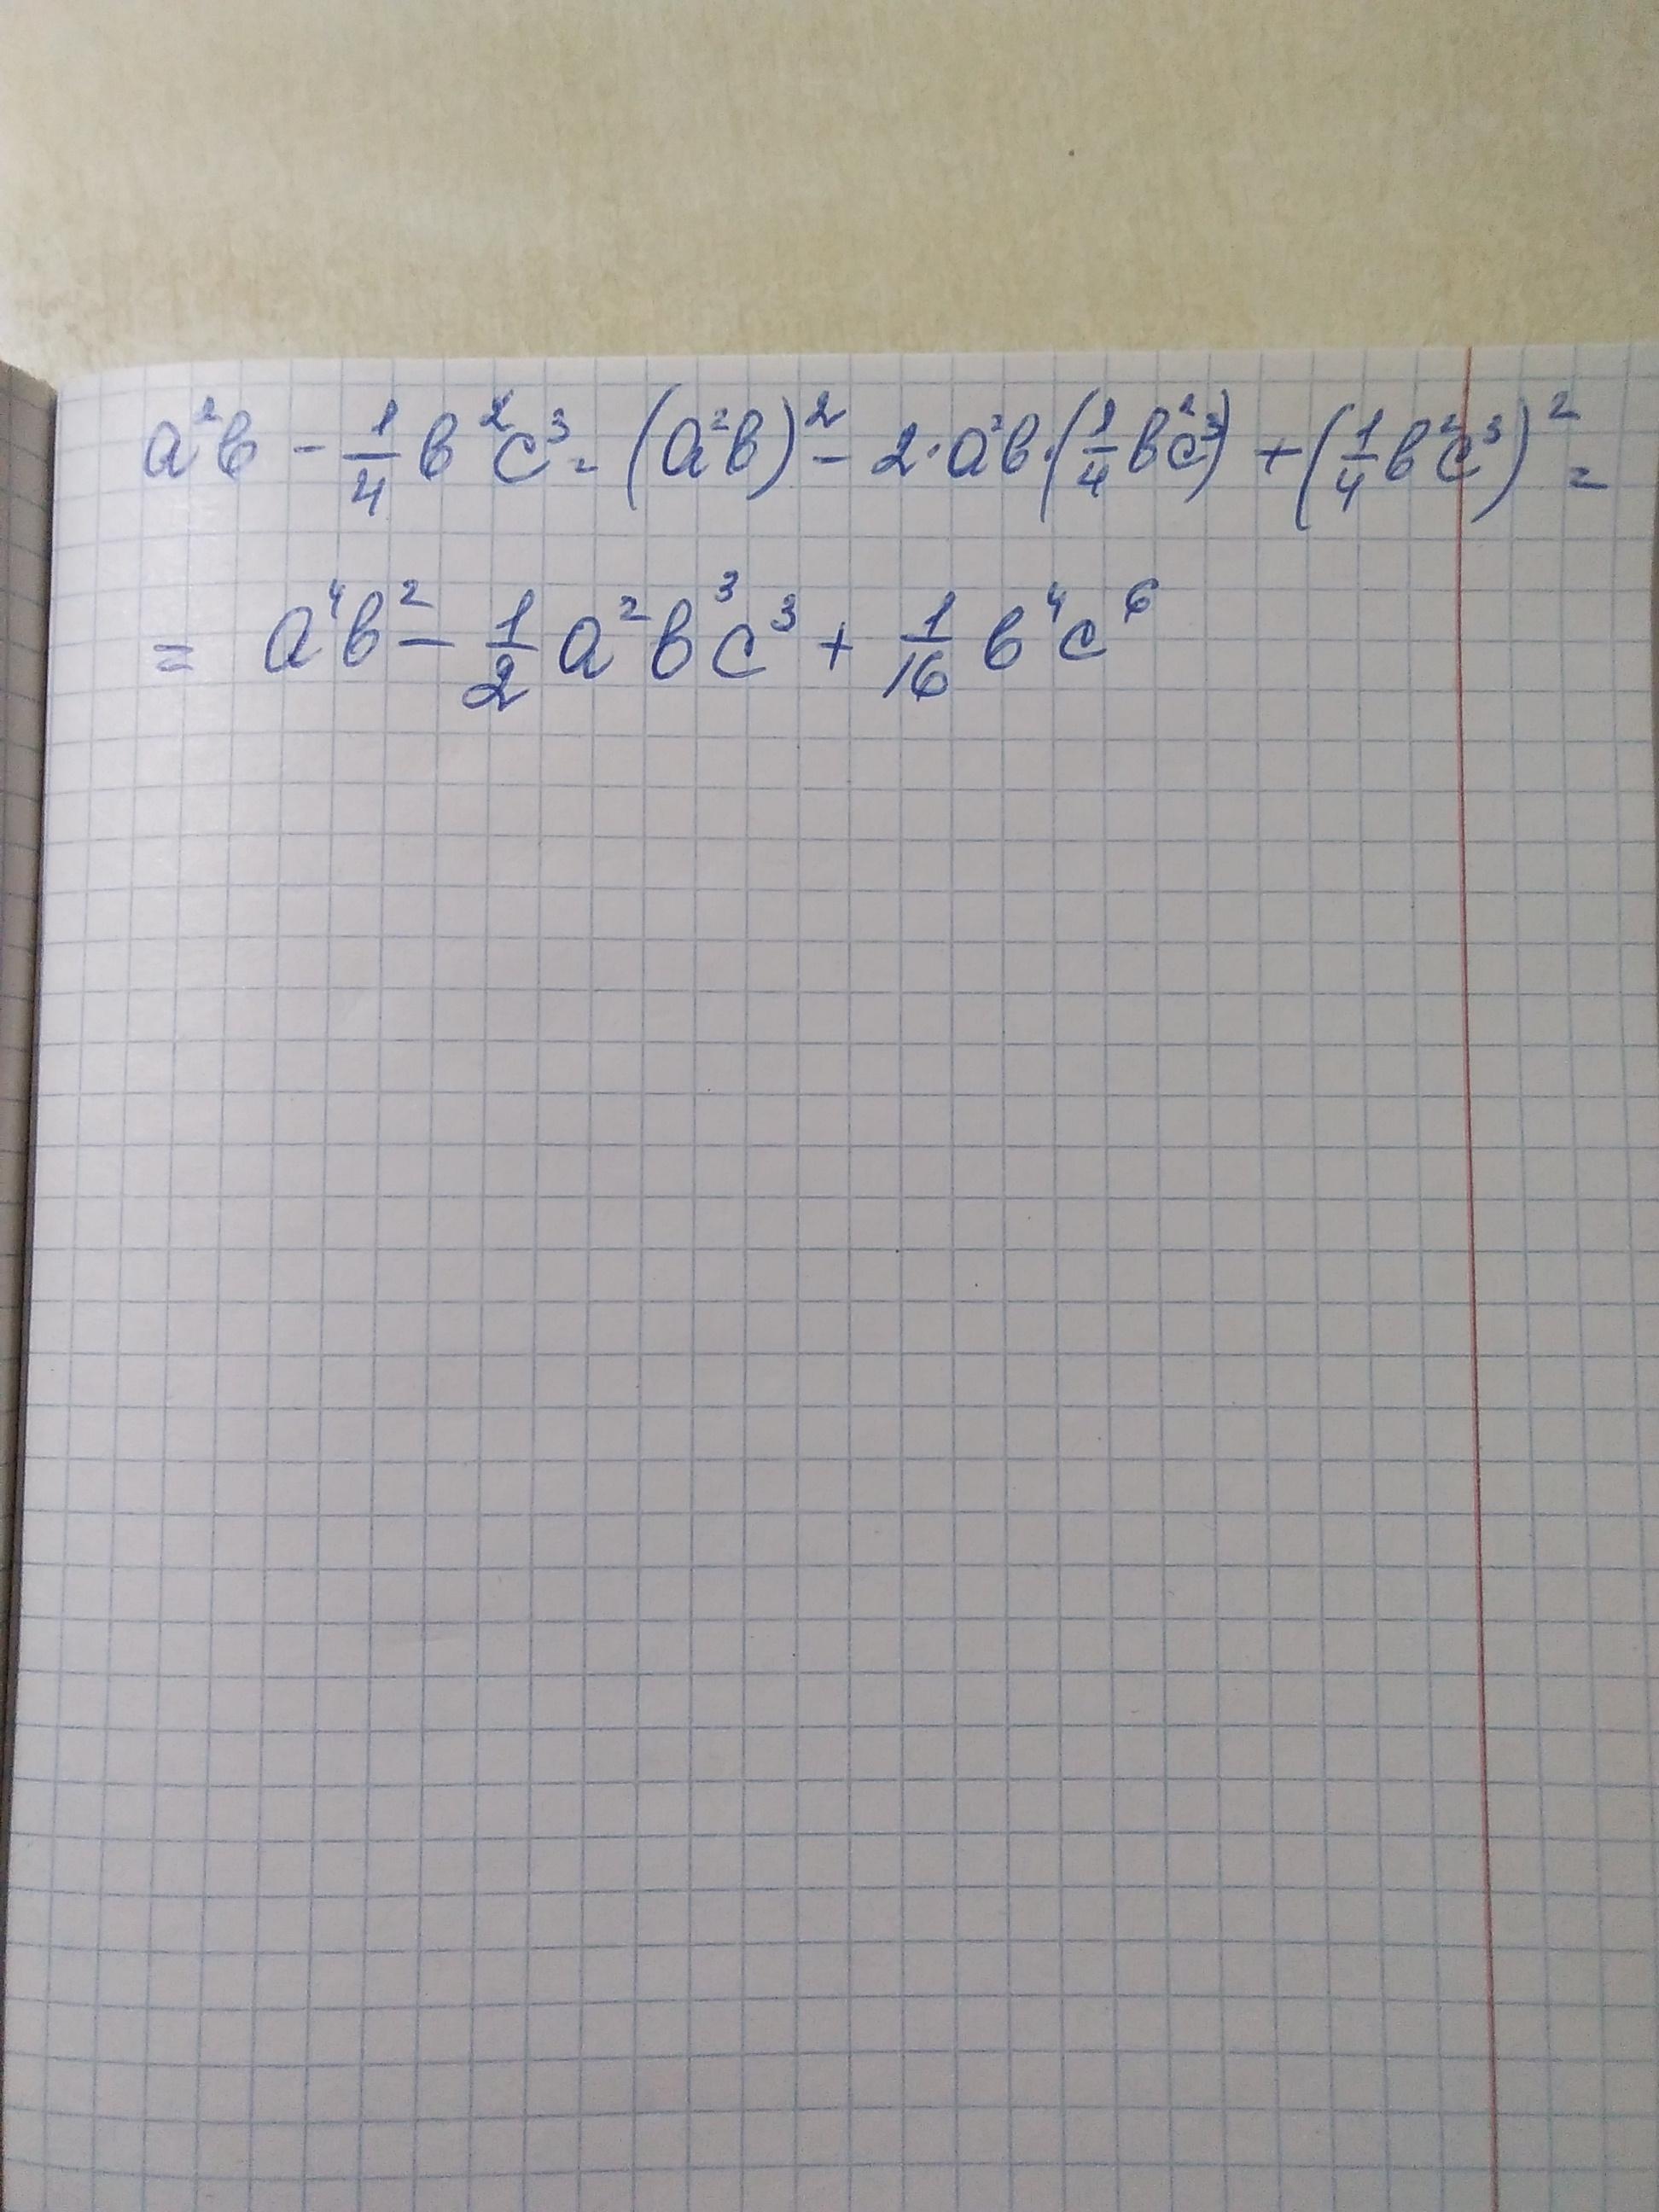 a²b - 1/4 b²c³ = (a²b)² - 2·a²b·(1/4 b²c³) + (1/4 b²c³)² =
= a⁴b² - 1/2 a²b³c³ + 1/16 b⁴c⁶